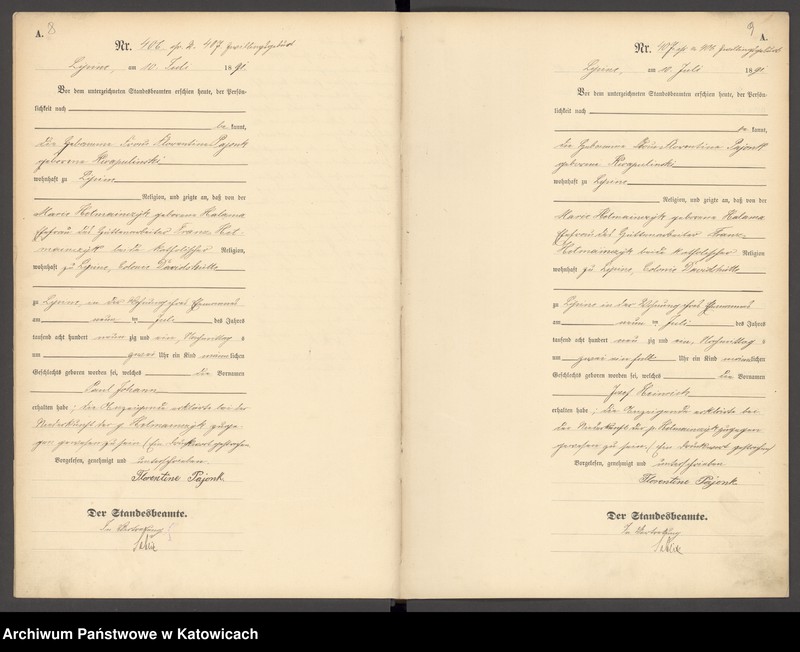 A. 8
Nr. 406. Zwillingsgeburt
Lipine, am 10. Juli 1891.
Vor dem unterzeichneten Standesbeamten erschien heute, der Persön-
lichkeit nach
be kannt,
die Hebamme Florentine Pajonk
geborene
wohnhaft zu Lipine
Religion, und zeigte an, daß von der
Marie geborene Kalama
Ehefrau des Hüttenarbeiter Franz
beide katholischer Religion,
wohnhaft zu Lipine, Colonie Davidshütte
zu Lipine, in der Wohnung ihres Ehemannes
am neun ten Juli des Jahres
tausend acht hundert neun zig und ein, Nachmittag s
um zwei Uhr ein Kind männlichen
Geschlechts geboren worden sei, welches die Vornamen
Paul Johann
erhalten habe; die Anzeigende erklärte bei der
Niederkunft der p. zuge-
gen gewesen zu sein. (Ein Druckwort gestrichen
Vorgelesen, genehmigt und unterschrieben
Florentine Pajonk
Der Standesbeamte.
In Vertretung
9
A.
Nr. 407. Zwillingsgeburt
Lipine, am 10. Juli 1891.
Vor dem unterzeichneten Standesbeamten erschien heute, der Persön-
lichkeit nach
be kannt,
die Hebamme Florentine Pajonk
geborene
wohnhaft zu Lipine
Religion, und zeigte an, daß von der
Marie geborene Kalama
Ehefrau des Hüttenarbeiter Franz
beide katholischer Religion
wohnhaft zu Lipine, Colonie Davidshütte
zu Lipine in der Wohnung ihres Ehemannes
am neun ten Juli des Jahres
tausend acht hundert neun zig und ein, Nachmittag s
um zwei ein halb Uhr ein Kind männlichen
Geschlechts geboren worden sei, welches die Vornamen
Josef Heinrich
erhalten habe; die Anzeigende erklärte bei
der Niederkunft der p. zugegen
gewesen zu sein. (Ein Druckwort gestrichen
Vorgelesen, genehmigt und unterschrieben
Florentine Pajonk
Der Standesbeamte.
In Vertretung
Archiwum Państwowe w Katowicach